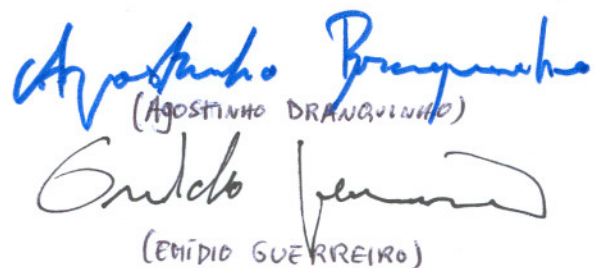 Agostinho Branquinho
(AGOSTINHO BRANQUINHO)
Emídio Guerreiro
(EMÍDIO GUERREIRO)